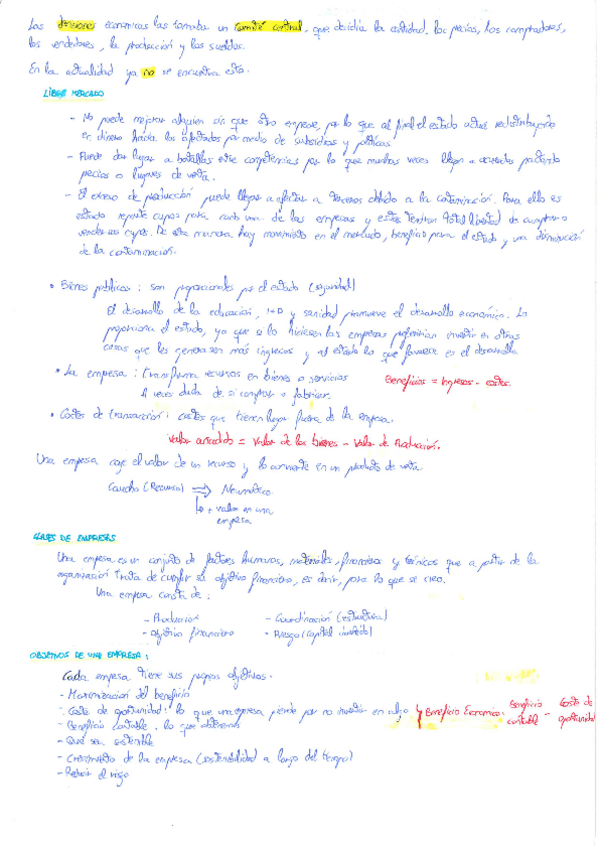 Las decisiones económicas las tomaba un comité central, que decidía la cantidad, los precios, los compradores,
los vendedores, la producción y los sueldos.
En la actualidad ya no se encuentra esto.
LIBRE MERCADO
- No puede mejorar alguien sin que otro empeore, por lo que al final el estado actúa redistribuyendo
el dinero hacia los afectados por medio de subsidios y políticas.
- Puede dar lugar a batallas entre competencias por lo que muchas veces llegan a acuerdos pactando
precios o lugares de venta.
- El exceso de producción puede llegar a afectar a terceros debido a la contaminación. Para ello el
estado reparte cupos para cada una de las empresas y estas tienen total libertad de comprar o
vender sus cupos. De esta manera hay movimiento en el mercado, beneficio para el estado y una disminución
de la contaminación.
• Bienes públicos: son proporcionales por el estado (seguridad)
El desarrollo de la educación, I+D y sanidad promueve el desarrollo económico. Lo
proporciona el estado, ya que si lo hiciesen las empresas preferirían invertir en otras
cosas que les generasen más ingresos y al estado lo que favorece es el desarrollo
• La empresa: transforma recursos en bienes o servicios
A veces duda de si comprar o fabricar.
Beneficios = Ingresos - costes.
• Costes de transacción: costes que tienen lugar fuera de la empresa.
Valor añadido = Valor de los bienes - Valor de Producción.
Una empresa coge el valor de un recurso y lo aumenta en un producto de venta
Caucho (Recurso) ⇒ Neumático
↳ + valor en una
empresa
CLASES DE EMPRESAS
Una empresa es un conjunto de factores humanos, materiales, financieros y técnicos que a partir de la
organización trata de cumplir su objetivo financiero, es decir, para lo que se creo.
Una empresa consta de:
- Producción - Coordinación (estructura)
- Objetivo financiero - Riesgo (Capital invertido)
OBJETIVOS DE UNA EMPRESA:
Cada empresa tiene sus propios objetivos.
- Maximización del beneficio
- Coste de oportunidad: lo que una empresa pierde por no invertir en algo
- Beneficio contable: lo que
Beneficio Economico: Beneficio contable - Coste de oportunidad
- Que sea sostenible
- Crecimiento de la empresa (sostenibilidad a largo del tiempo)
- Reducir el riesgo